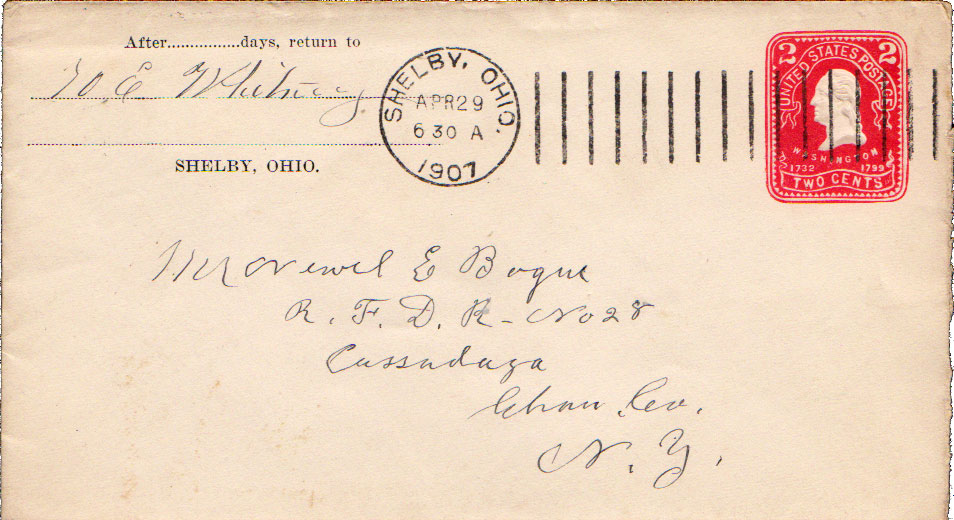 After...............days, return to
W. E. Whitney
SHELBY, OHIO.
SHELBY, OHIO.
APR 29
6 30 A
1907
2 2
UNITED STATES POSTAGE
WASHINGTON
1732 1799
TWO CENTS
Mr Newel E Bogue
R. F. D. R - No 28
Cassadaga
Chau. Co.
N. Y.